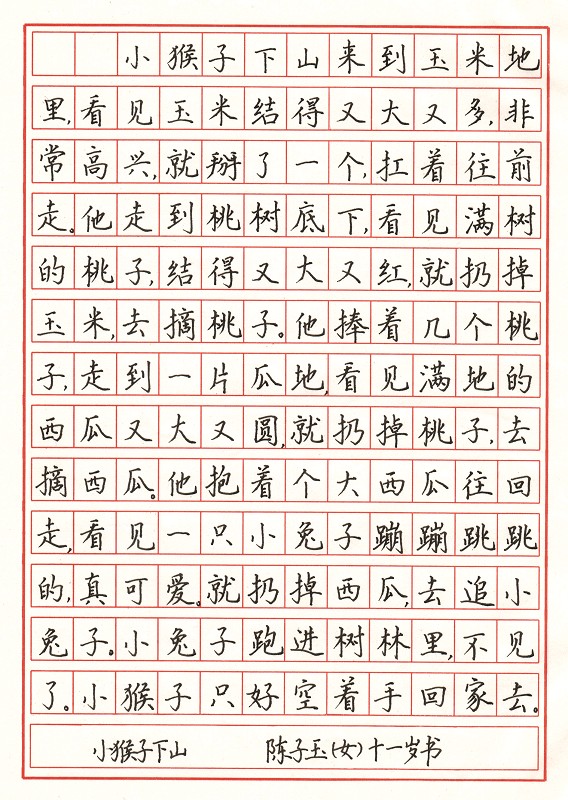 小猴子下山来到玉米地
里,看见玉米结得又大又多,非
常高兴,就掰了一个,扛着往前
走。他走到桃树底下,看见满树
的桃子,结得又大又红,就扔掉
玉米,去摘桃子。他捧着几个桃
子,走到一片瓜地,看见满地的
西瓜又大又圆,就扔掉桃子,去
摘西瓜。他抱着个大西瓜往回
走,看见一只小兔子蹦蹦跳跳
的,真可爱。就扔掉西瓜,去追小
兔子。小兔子跑进树林里,不见
了。小猴子只好空着手回家去。
小猴子下山 陈子玉(女)十一岁书